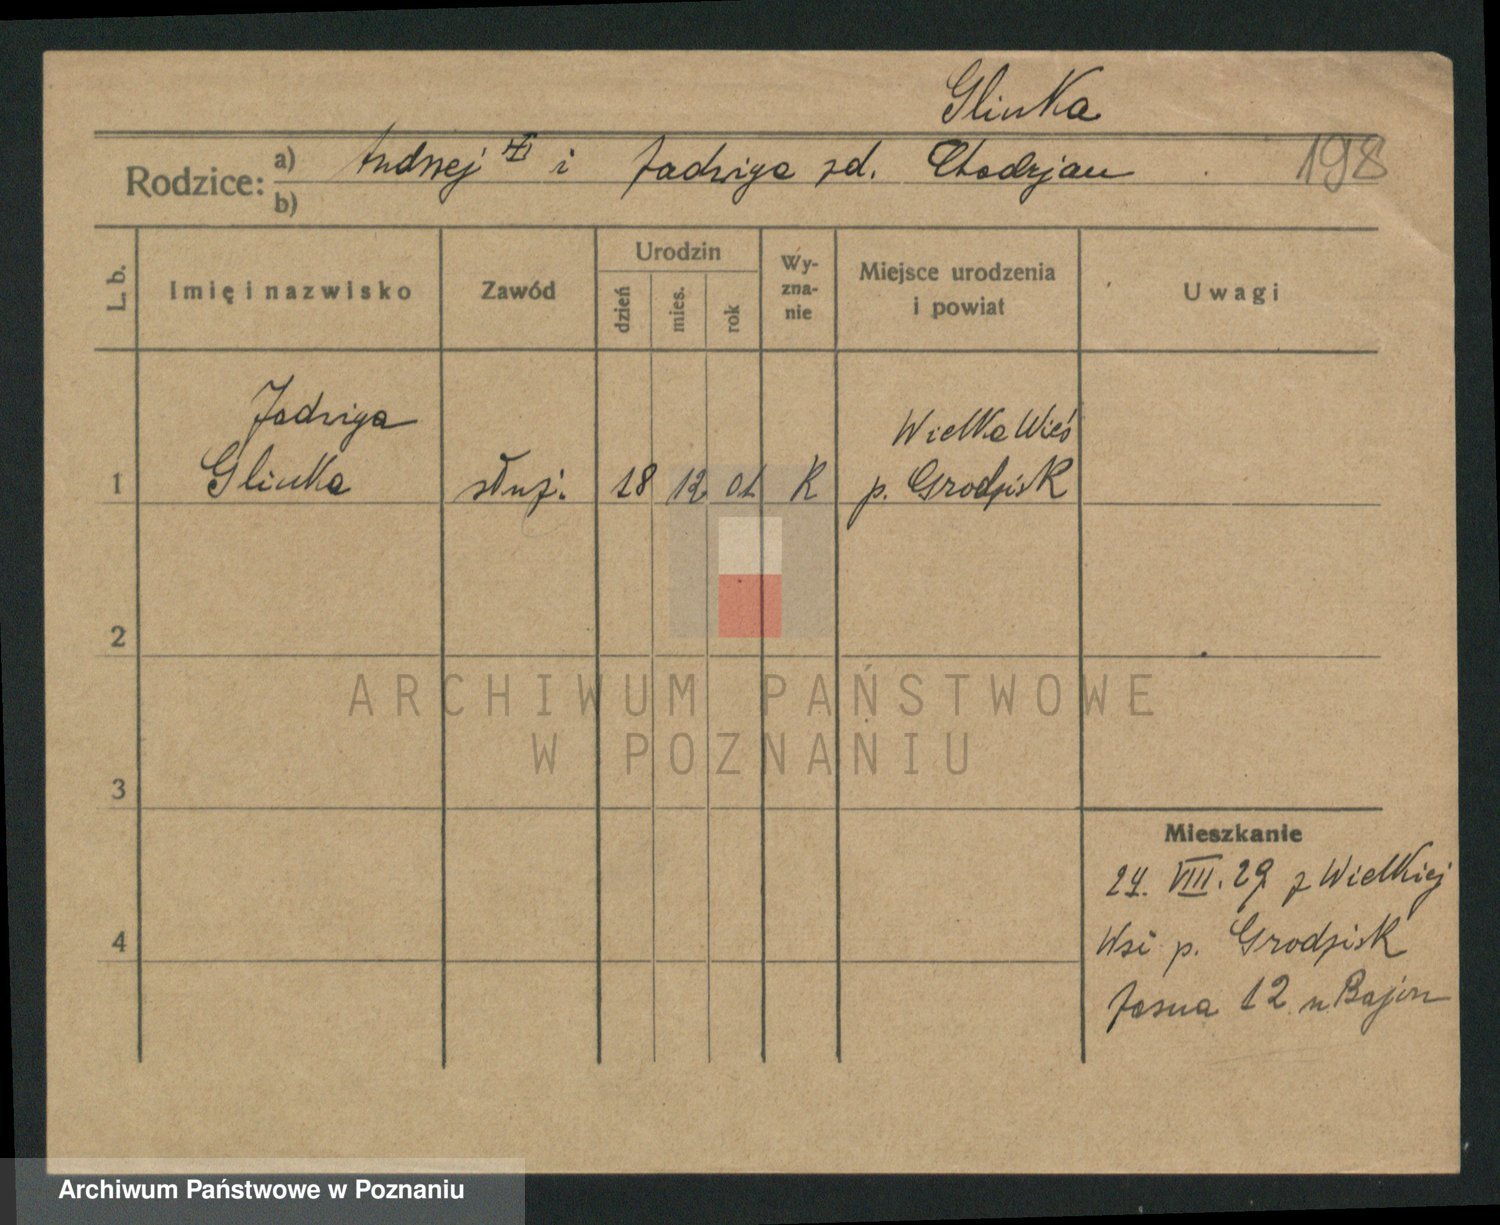 Glinka
Rodzice: a) Andrzej i Jadwiga zd. Chodzjan
b)
198
L. b.
Imię i nazwisko
Zawód
Urodzin
dzień
mies.
rok
Wy-
zna-
nie
Miejsce urodzenia
i powiat
Uwagi
Jadwiga Wielka Wieś
1 Glinka służ. 18 12 01 R p. Grodzisk
2
ARCHIWUM PAŃSTWOWE
W POZNANIU
3
Mieszkanie
24. VIII. 29 z Wielkiej
4 Wsi p. Grodzisk
Jasna 12 u
Archiwum Państwowe w Poznaniu